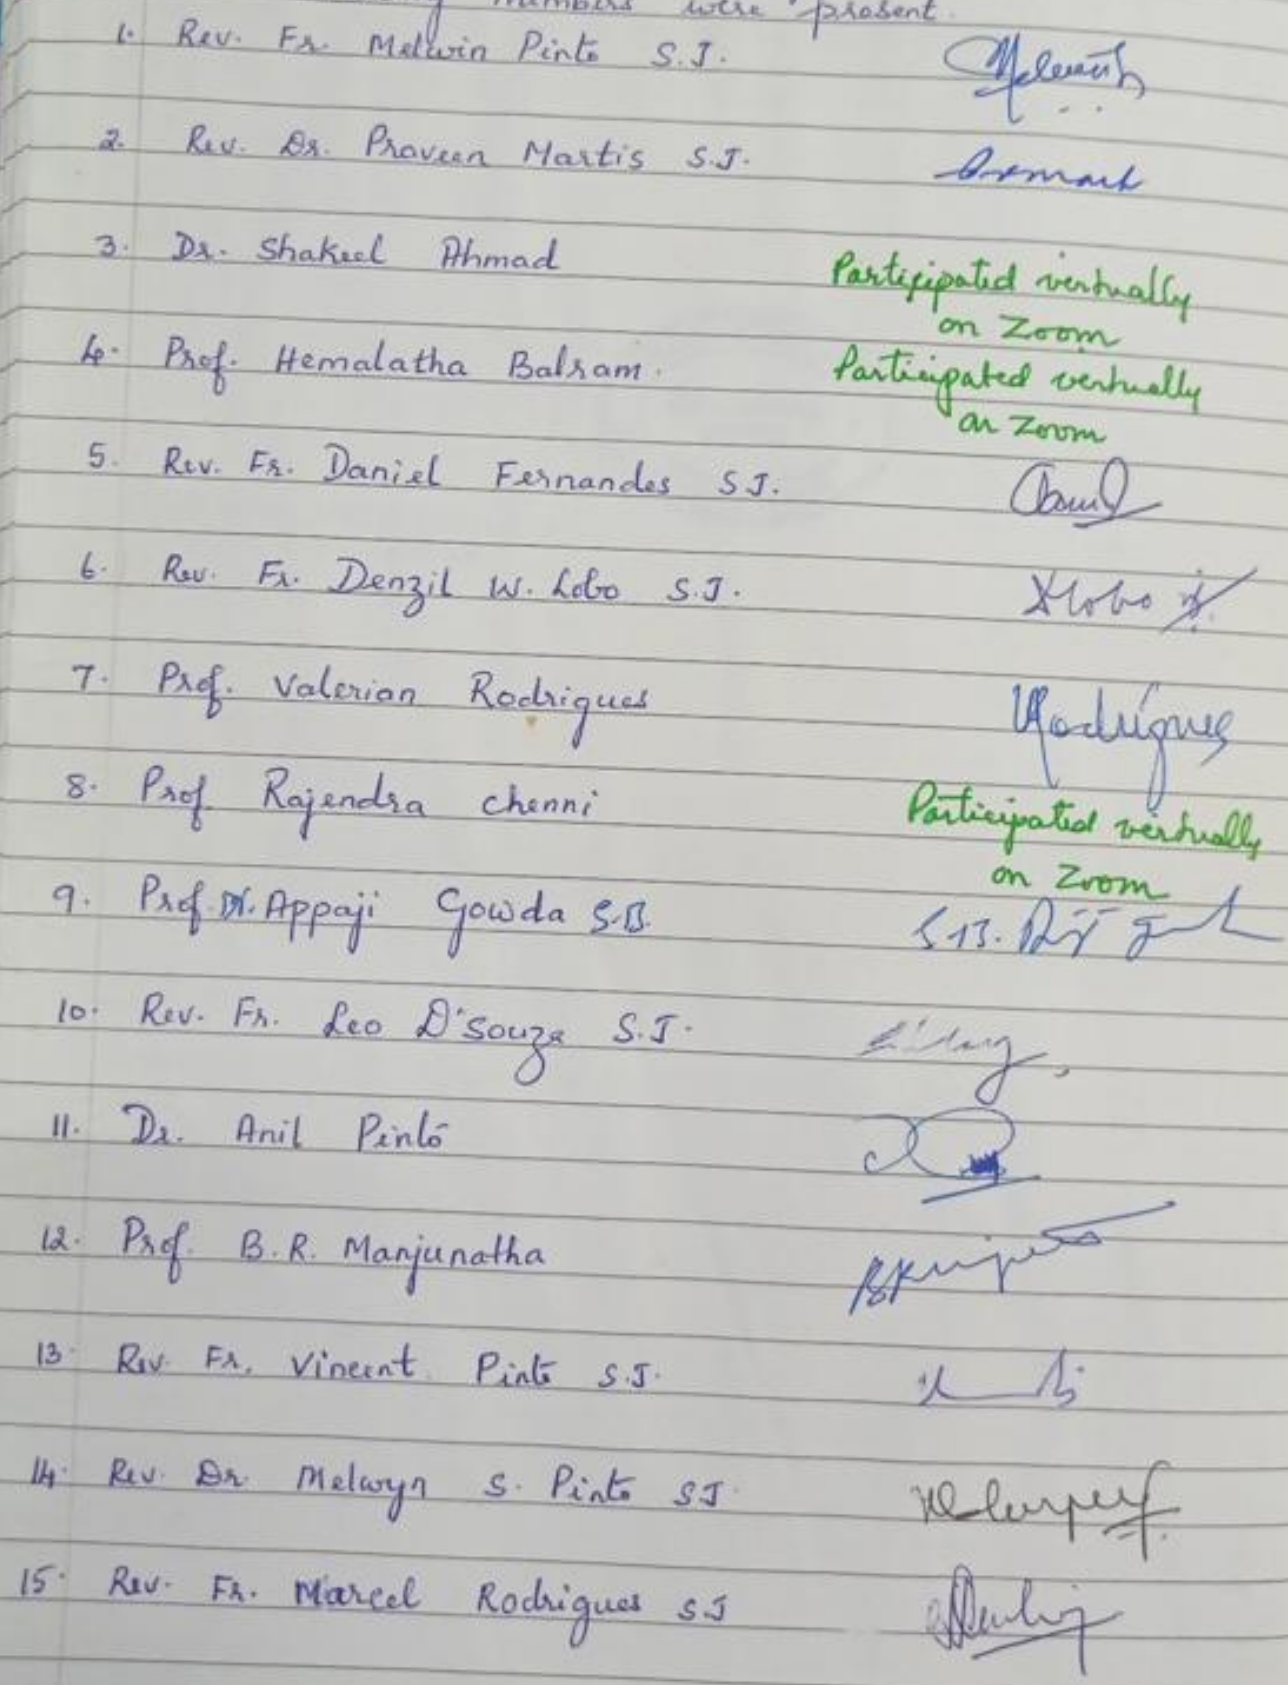 members were present.
1. Rev. Fr. Melwin Pinto S.J.
2. Rev. Dr. Praveen Martis S.J.
3. Dr. Shakeel Ahmad Participated vertually
on Zoom
4. Prof. Hemalatha Balram. Participated vertually
on Zoom
5. Rev. Fr. Daniel Fernandes SJ.
6. Rev. Fr. Denzil W. Lobo S.J. DLobo
7. Prof. Valerian Rodrigues VRodrigues
8. Prof. Rajendra Chenni Participated vertually
on Zoom
9. Prof. Dr. Appaji Gowda S.B. S.B.
10. Rev. Fr. Leo D'Souza S.J.
11. Dr. Anil Pinto
12. Prof. B.R. Manjunatha
13. Rev. Fr. Vincent Pinto S.J.
14. Rev. Dr. Melwyn S. Pinto SJ
15. Rev. Fr. Marcel Rodrigues SJ